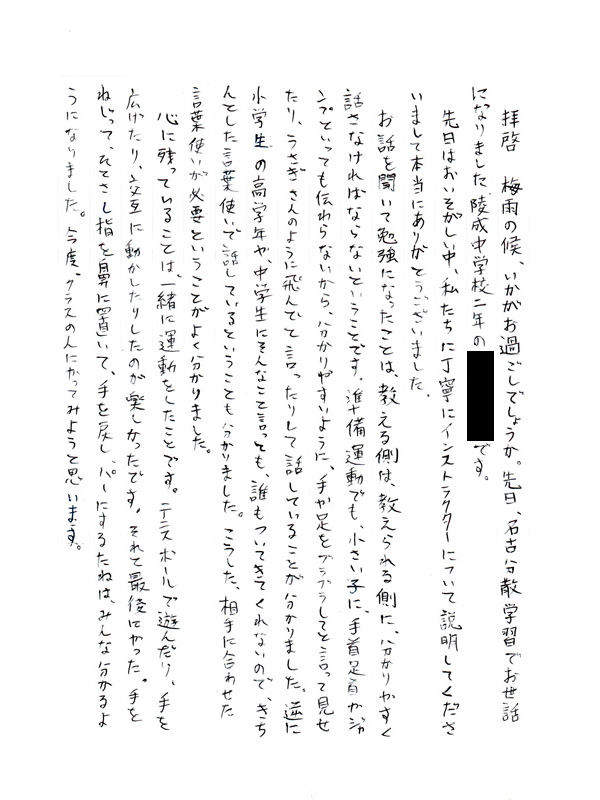 拝啓　梅雨の候、いかがお過ごしでしょうか。先日、名古分散学習でお世話
になりました、陵成中学校二年の　です。
先日はおいそがしい中、私たちに丁寧にインストラクターについて説明してくださ
いまして本当にありがとうございました。
お話を聞いて勉強になったことは、教える側は、教えられる側に、分かりやすく
話さなければならないということです。準備運動でも、小さい子に、手首足首かジャ
ンプといっても伝わらないから、分かりやすいように、手や足をブラブラしてと言って見せ
たり、うさぎさんのように飛んでと言ったりして話していることが分かりました。逆に
小学生の高学年や、中学生にそんなこと言っても、誰もついてきてくれないので、きち
んとした言葉使いで話しているということも分かりました。こうした、相手に合わせた
言葉使いが必要ということがよく分かりました。
心に残っていることは、一緒に運動をしたことです。テニスボールで遊んだり、手を
広げたり、交互に動かしたりしたのが楽しかったです。それで最後にやった。手を
ねじって、ひとさし指を鼻に置いて、手を戻し、パーにするたねは、みんな分かるよ
うになりました。今度、クラスの人にやってみようと思います。